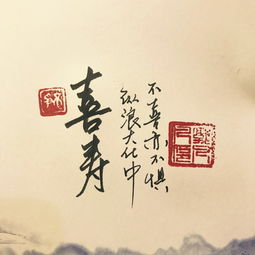 喜寿
纵浪大化中
不喜亦不惧